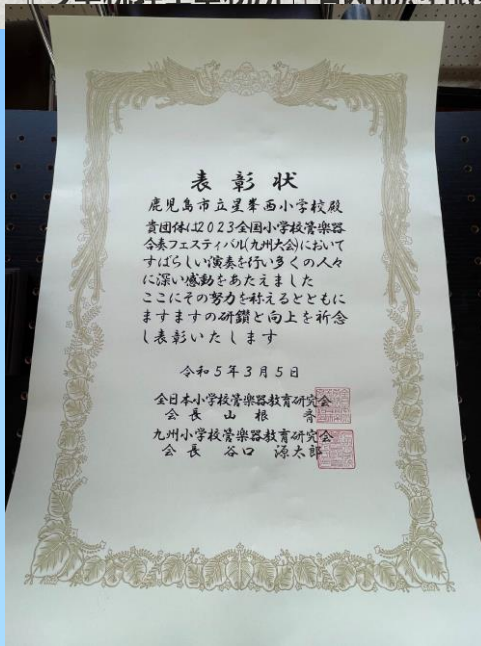 表彰状
鹿児島市立星峯西小学校殿
貴団体は2023全国小学校管楽器
合奏フェスティバル(九州大会)において
すばらしい演奏を行い多くの人々
に深い感動をあたえました
ここにその努力を称えるとともに
ますますの研鑽と向上を祈念
し表彰いたします
令和5年3月5日
全日本小学校管楽器教育研究会
会長 山根
九州小学校管楽器教育研究会
会長 谷口 源太郎